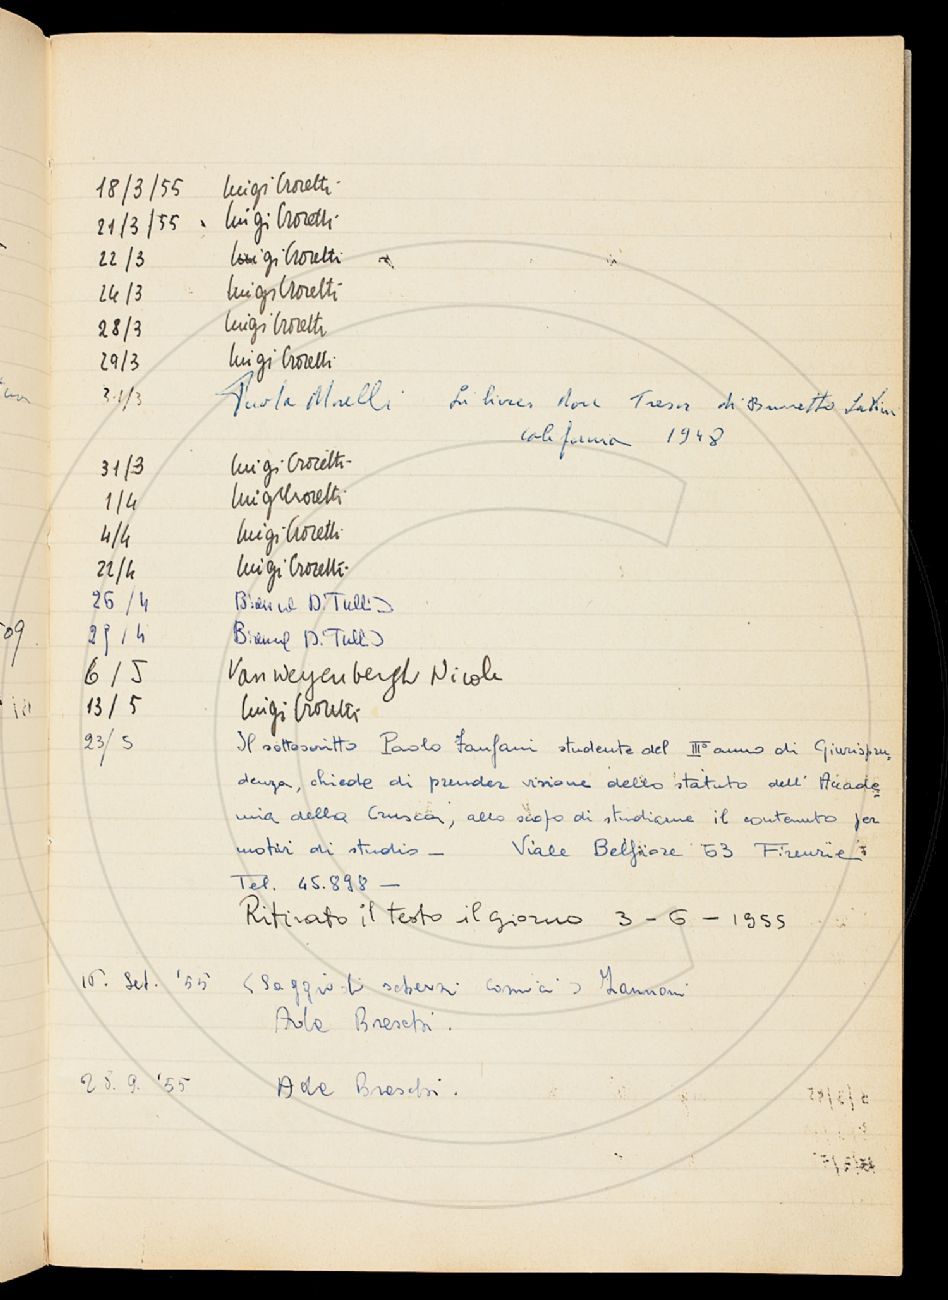 18/3/55 Luigi Crocetti
21/3/55 Luigi Crocetti
22/3 Luigi Crocetti
24/3 Luigi Crocetti
28/3 Luigi Crocetti
29/3 Luigi Crocetti
31/3 Paola Morelli Li livres dou Tresor di Brunetto Latini
california 1948
31/3 Luigi Crocetti
1/4 Luigi Crocetti
4/4 Luigi Crocetti
22/4 Luigi Crocetti
26/4 Bianca Di Tullio
29/4 Bianca Di Tullio
6/5 Vanweyenbergh Nicole
13/5 Luigi Crocetti
23/5 Il sottoscritto Paolo Fanfani studente del III° anno di Giurispru=
denza, chiede di prender visione dello statuto dell' Accade=
mia della Crusca, allo scopo di studiarne il contenuto per
motivi di studio — Viale Belfiore 53 Firenze
Tel. 45.898 —
Ritirato il testo il giorno 3-6-1955
15. Set. '55 (Saggio di scherzi comici) Zannoni
Ada Breschi.
28. 9. '55 Ada Breschi.